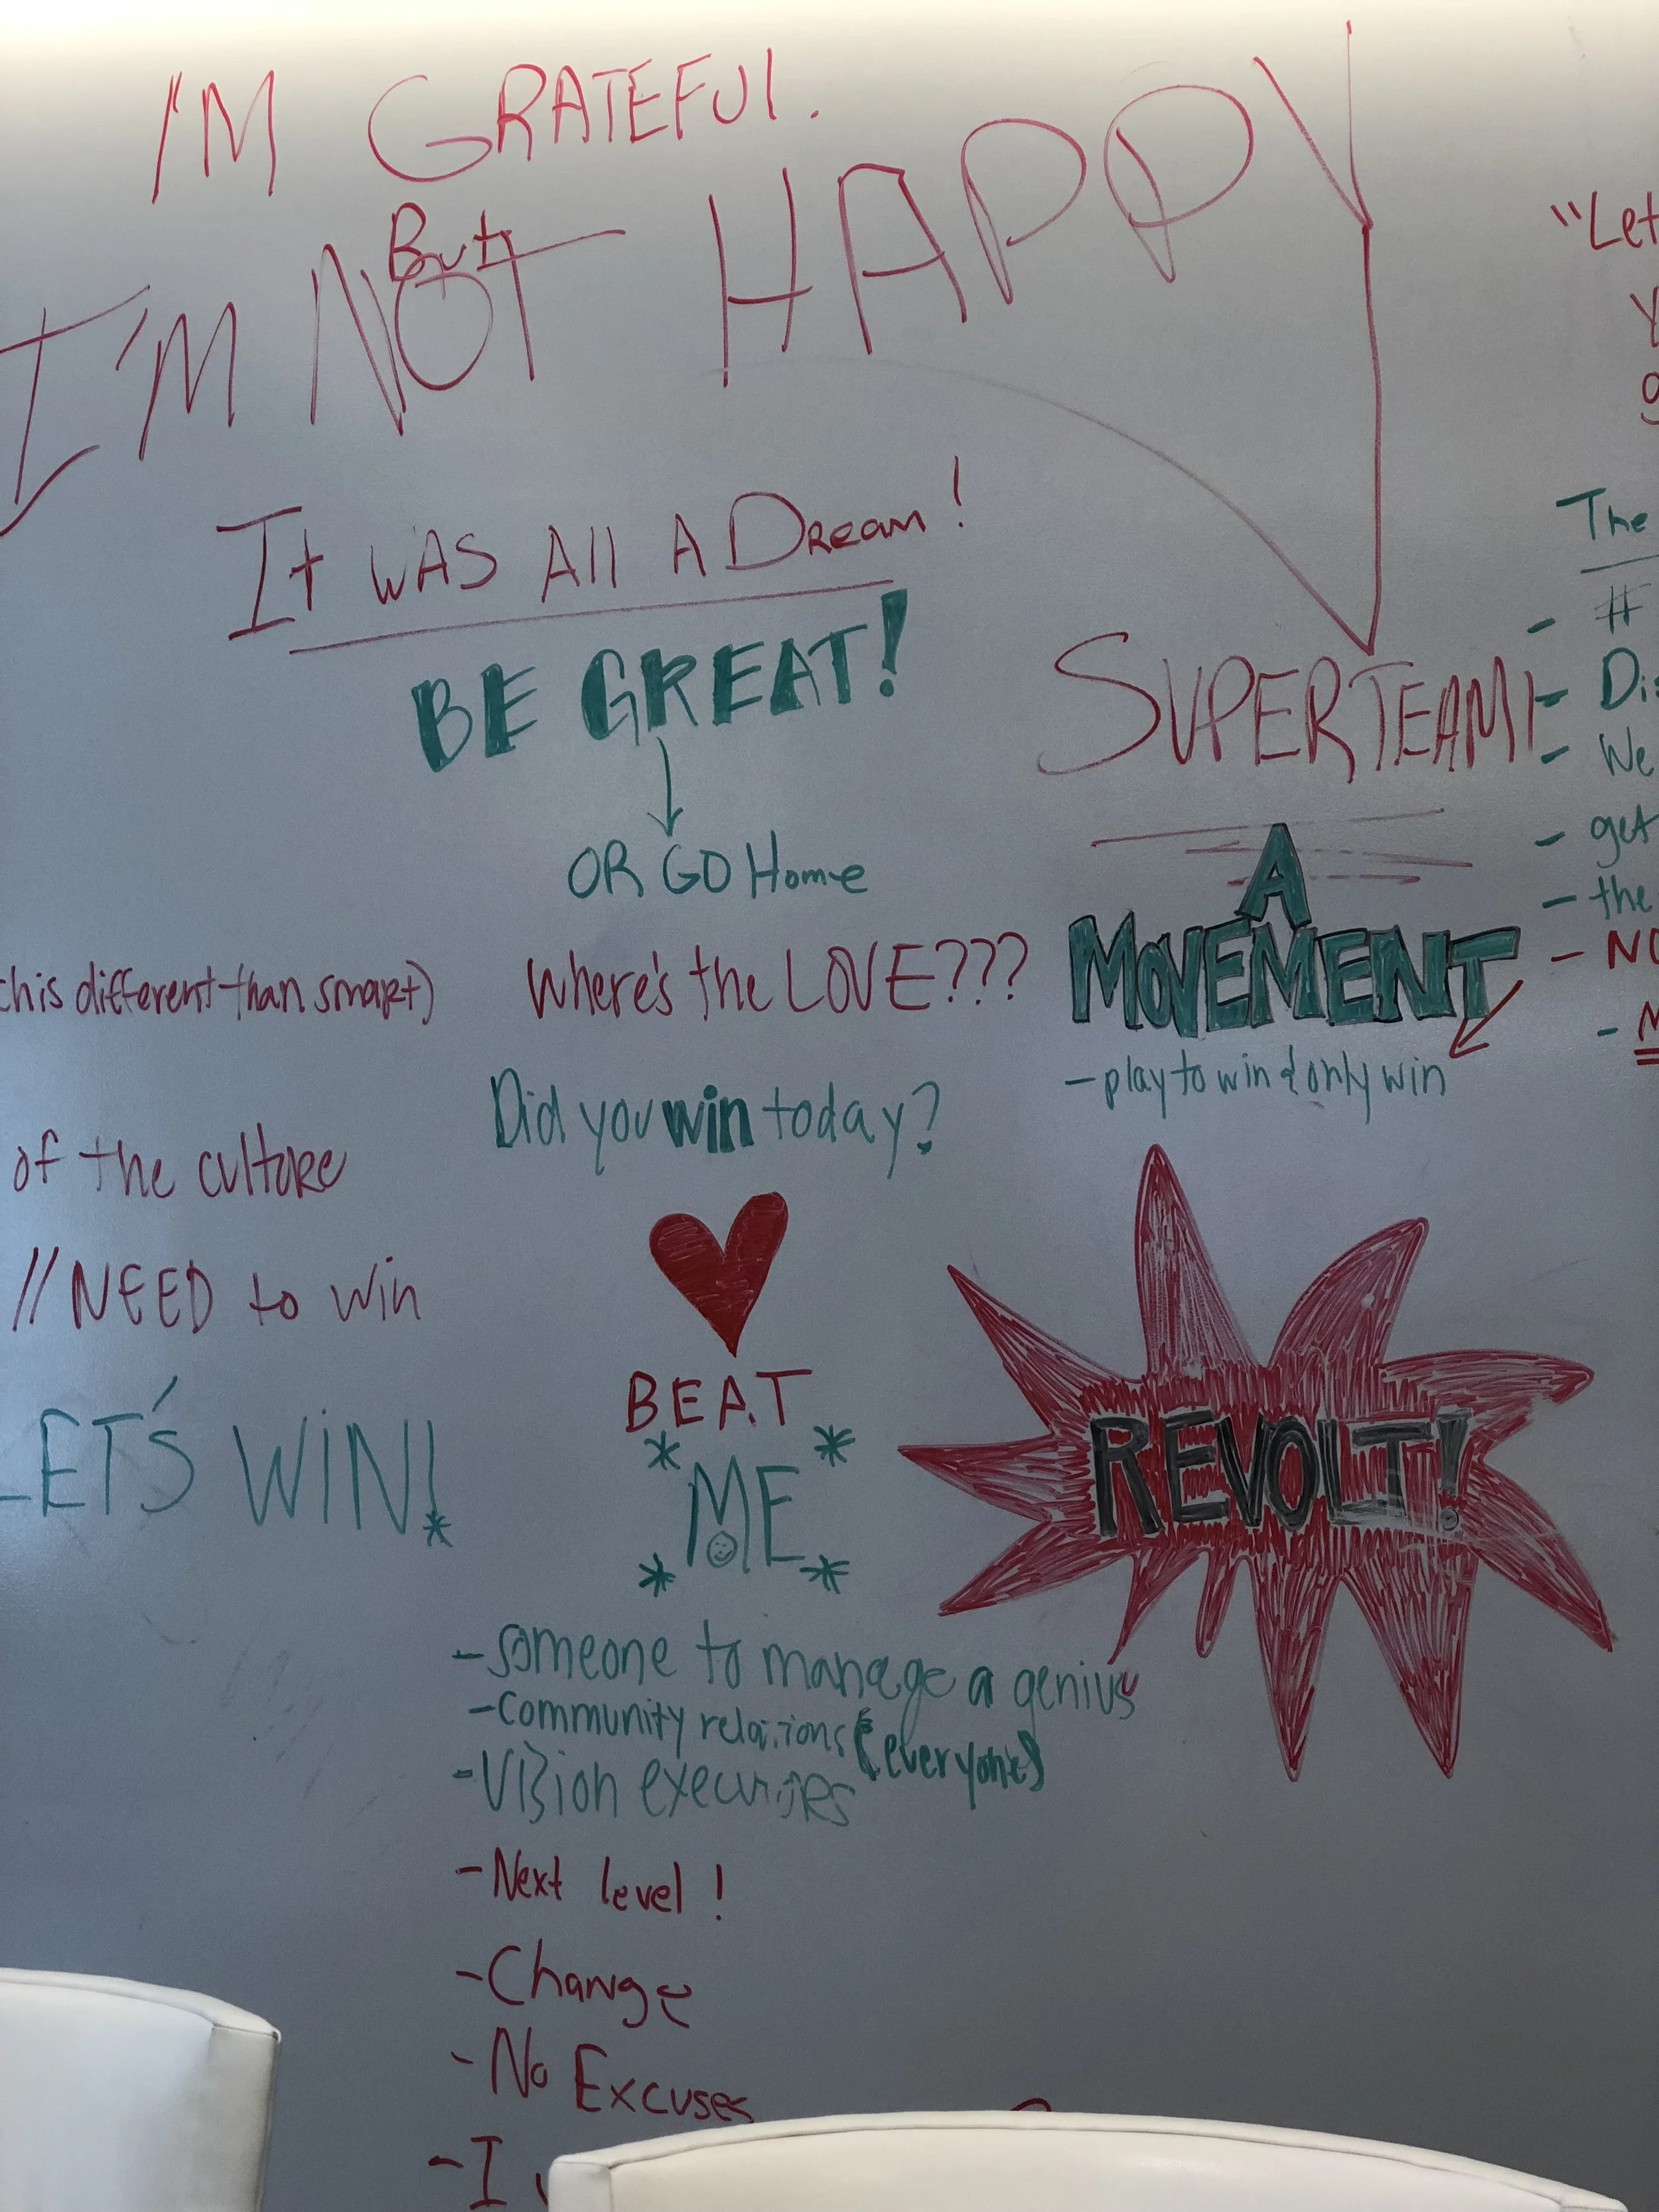 I'M GRATEFUL.
But
I'M NOT HAPPY
It WAS All A Dream!
BE GREAT!
OR GO Home
Where's the LOVE???
Did you win today?
BEAT
* *
ME
* *
-Someone to manage a genius
-Community relations (everyone)
-Vision executors
-Next level!
-Change
-No Excuses
-I
this different than smart)
of the culture
// NEED to win
LET'S WIN!
*
SUPERTEAM!
A
MOVEMENT
-play to win & only win
REVOLT!
"Let
The
- #
- Dis
- We
- get
- the
- NO
- M